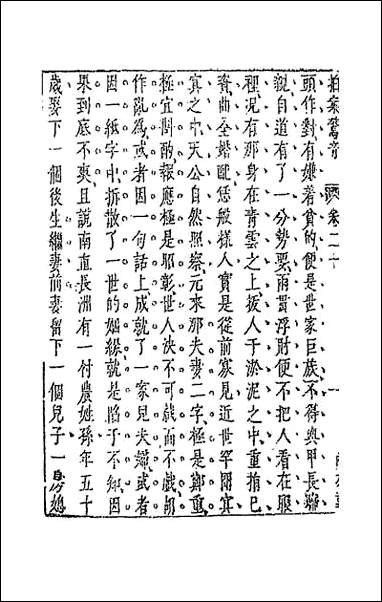 拍案驚奇 卷二十
頭作對有嫌着貧的便是世家巨族不得與甲長聯
親自道有了一分勢要兩貫浮財便不把人看在眼
裡況有那身在青雲之上拔人于淤泥之中重捐已
資曲全婚配恁般樣人實是從前寡見近世罕聞冥
冥之中天公自然照察元來那夫妻二字極是鄭重
極宜斟酌報應極是昭彰世人決不可戲而不戲胡
作亂為或者因一句話上成就了一家兒夫婦或者
因一紙字中拆散了一世的姻緣就是陷于不知因
果到底不爽且說南直長洲有一村農姓孫年五十
歲娶下一個後生繼妻前妻留下一個兒子一